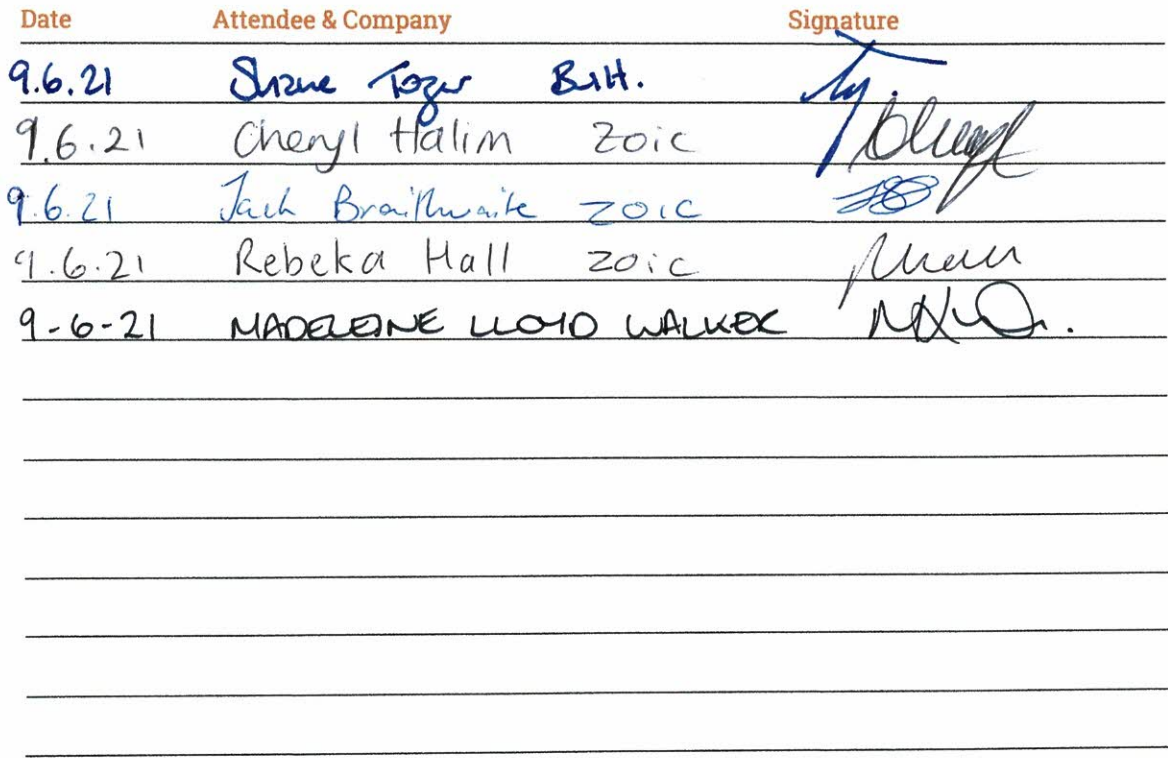 Date Attendee & Company Signature
9.6.21 Shane Tozer
9.6.21 Cheryl Halim Zoic
9.6.21 Jack Braithwaite ZOIC
9.6.21 Rebeka Hall zoic
9-6-21 MADELEINE LLOYD WALKER